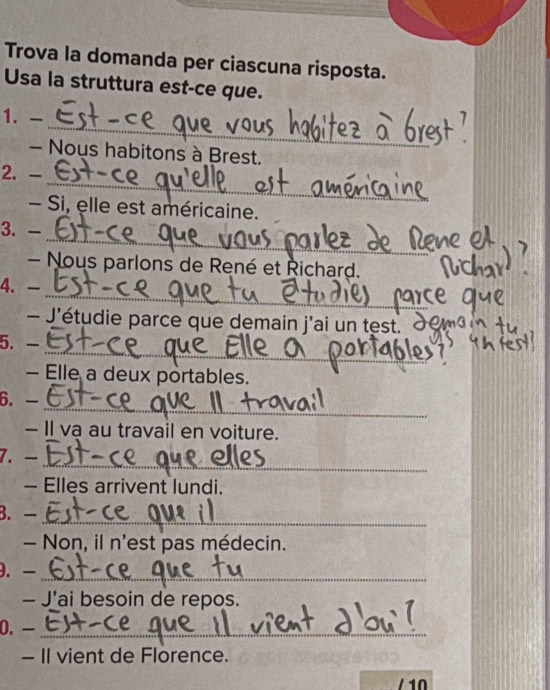 Trova la domanda per ciascuna risposta.
Usa la struttura est-ce que.
1. – Est-ce que vous habitez à Brest?
– Nous habitons à Brest.
2. – Est-ce qu'elle est américaine
– Si, elle est américaine.
3. – Est-ce que vous parlez de Rene et Richard?
– Nous parlons de René et Richard.
4. – Est-ce que tu étudies parce que demain tu as un test?
– J'étudie parce que demain j'ai un test.
5. – Est-ce que Elle a portables?
– Elle a deux portables.
6. – Est-ce que Il travail
– Il va au travail en voiture.
7. – Est-ce que elles
– Elles arrivent lundi.
8. – Est-ce que il
– Non, il n'est pas médecin.
9. – Est-ce que tu
– J'ai besoin de repos.
0. – Est-ce que il vient d'oui?
– Il vient de Florence.
/ 10